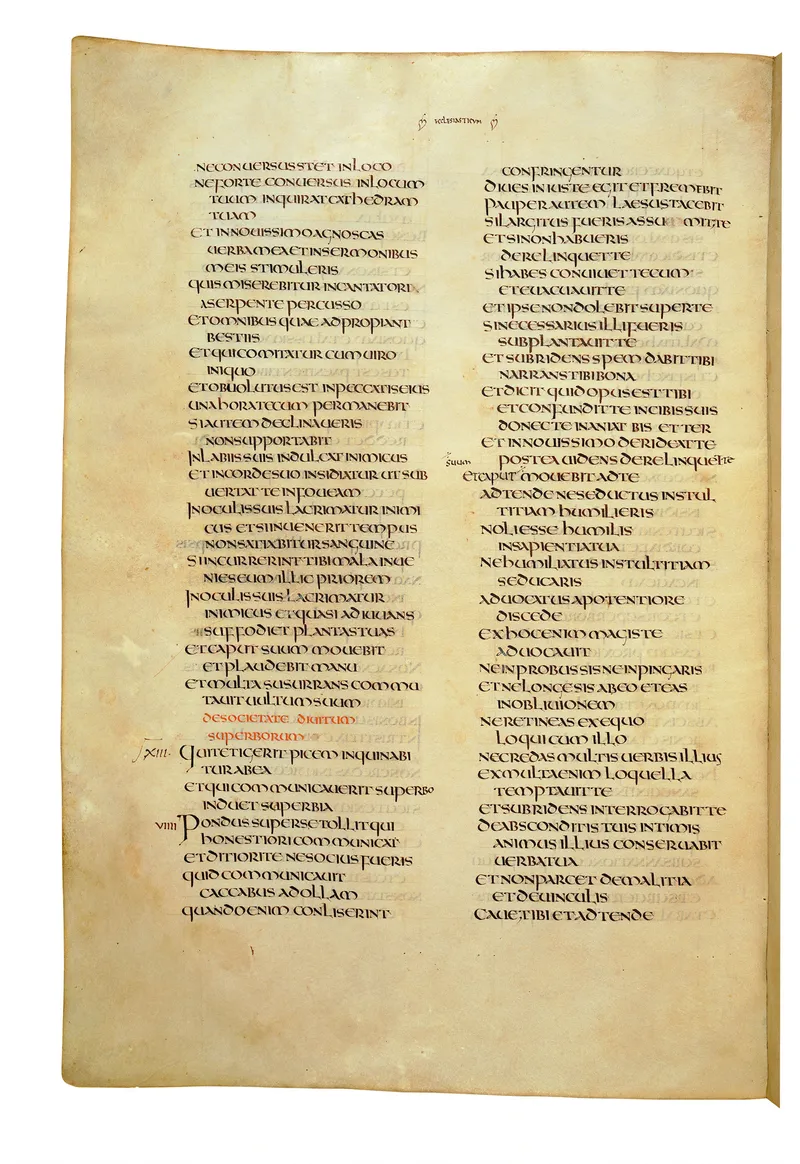 ECCLESIASTICUM
NE CONUERSUS STET IN LOCO
NE FORTE CONUERSUS IN LOCUM
TUUM INQUIRAT CATHEDRAM
TUAM
ET IN NOUISSIMO AGNOSCAS
UERBA MEA ET IN SERMONIBUS
MEIS STIMULERIS
QUIS MISEREBITUR INCANTATORI
A SERPENTE PERCUSSO
ET OMNIBUS QUAE ADPROPIANT
BESTIIS
ET QUI COMITATUR CUM UIRO
INIQUO
ET OBUOLUTUS EST IN PECCATIS EIUS
UNA HORA TECUM PERMANEBIT
SI AUTEM DECLINAUERIS
NON SUPPORTABIT
IN LABIIS SUIS INDULCAT INIMICUS
ET IN CORDE SUO INSIDIATUR UT SUB
UERTAT TE IN FOUEAM
IN OCULIS SUIS LACRIMATUR INIMI
CUS ET SI INUENERIT TEMPUS
NON SATIABITUR SANGUINE
SI INCURRERINT TIBI MALA INUE
NIES EUM ILLIC PRIOREM
IN OCULIS SUIS LACRIMATUR
INIMICUS ET QUASI ADIUUANS
SUFFODIET PLANTAS TUAS
ET CAPUT SUUM MOUEBIT
ET PLAUDEBIT MANU
ET MULTA SUSURRANS COMMU
TAUIT UULTUM SUUM
DE SOCIETATE DIUITUM
SUPERBORUM
XIII QUI TETIGERIT PICEM INQUINABI
TUR AB EA
ET QUI COMMUNICAUERIT SUPERBO
INDUET SUPERBIA
VIIII PONDUS SUPER SE TOLLIT QUI
HONESTIORI COMMUNICAT
ET DITIORI TE NE SOCIUS FUERIS
QUID COMMUNICAUIT
CACCABUS AD OLLAM
QUANDO ENIM CONLISERINT
CONFRINGENTUR
DIUES INIUSTE EGIT ET FREMEBIT
PAUPER AUTEM LAESUS TACEBIT
SI LARGITUS FUERIS ASSUMIT TE
ET SI NON HABUERIS
DERELINQUET TE
SI HABES CONUIUET TECUM
ET EUACUAUIT TE
ET IPSE NON DOLEBIT SUPER TE
SI NECESSARIUS ILLI FUERIS
SUBPLANTAUIT TE
ET SUBRIDENS SPEM DABIT TIBI
NARRANS TIBI BONA
ET DICIT QUID OPUS EST TIBI
ET CONFUNDIT TE IN CIBIS SUIS
DONEC TE INANIAT BIS ET TER
ET IN NOUISSIMO DERIDEAT TE
POSTEA UIDENS DERELINQUET TE
ET CAPUT SUUM MOUEBIT AD TE
ADTENDE NE SEDUCTUS IN STUL
TITIAM HUMILIERIS
NOLI ESSE HUMILIS
IN SAPIENTIA TUA
NE HUMILIATUS IN STULTITIAM
SEDUCARIS
ADUOCATUS A POTENTIORE
DISCEDE
EX HOC ENIM MAGIS TE
ADUOCAUIT
NE INPROBUS SIS NE INPINGARIS
ET NE LONGE SIS AB EO ET EAS
IN OBLIUIONEM
NE RETINEAS EX EQUO
LOQUI CUM ILLO
NE CREDAS MULTIS UERBIS ILLIUS
EX MULTA ENIM LOQUELLA
TEMPTAUIT TE
ET SUBRIDENS INTERROGABIT TE
DE ABSCONDITIS TUIS INTIMIS
ANIMUS ILLIUS CONSERUABIT
UERBA TUA
ET NON PARCET DE MALITIA
ET DE UINCULIS
CAUE TIBI ET ADTENDE